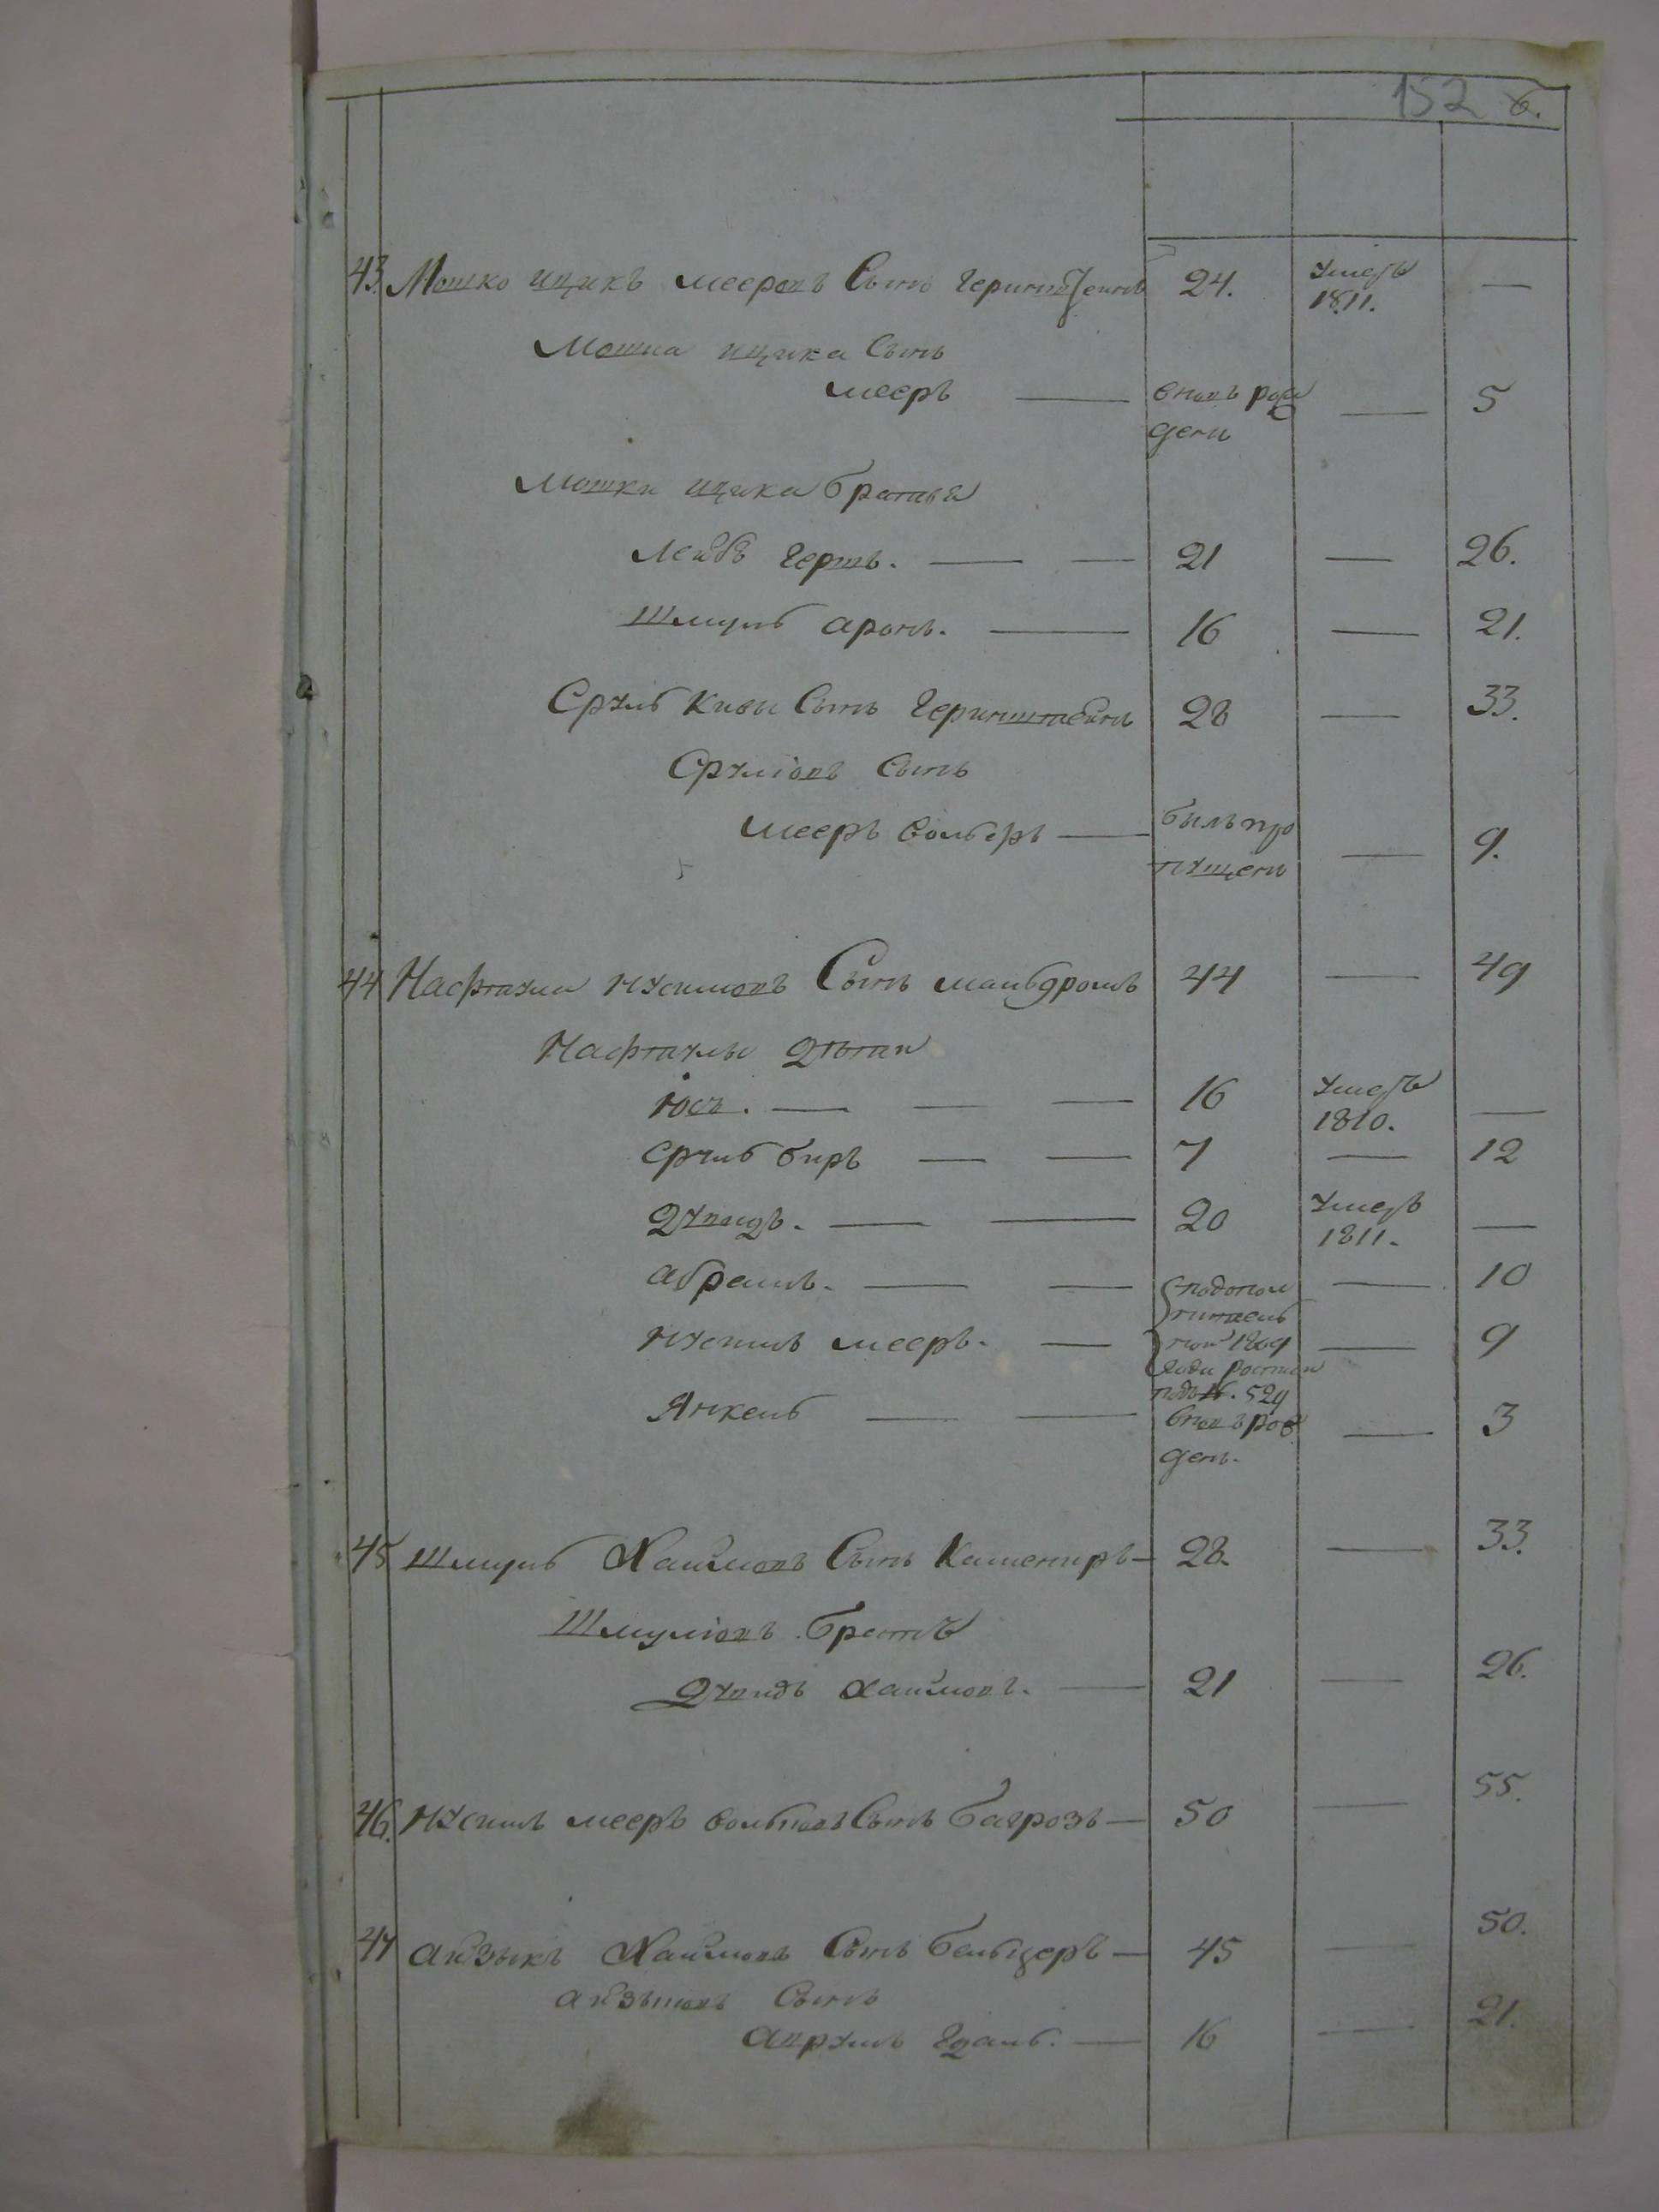 152 6.
43. Мошко ицикъ мееровъ Сынъ 24. умеръ 1811. —
Мошка ицика Сынъ
мееръ — вновь рож денъ — 5
Мошки ицика братья
Лейбъ гершъ. — — 21 — 26.
Шмуль аронъ. — 16 — 21.
Сруль Кивы Сынъ Геринштейнъ 28 — 33.
Сруліовъ Сынъ
мееръ вольберъ — былъ про пущенъ — 9.
44 Нафтули нусимовъ Сынъ мальдромъ 44 — 49
Нафтулы дѣти
іосъ. — — — 16 умеръ 1810. —
сруль биръ — — 7 — 12
дувидъ. — — 20 умеръ 1811. —
абрамъ. — — — 10
нусимъ мееръ. — — 9
по дополнитель ной 1809 года ростии подъ №. 529
Янкель — — вновь рож денъ. — 3
45 Шмуль Хаимовъ Сынъ Камениръ — 28. — 33.
Шмуліовъ братъ
Дувидъ хаимовъ. — 21 — 26.
46. Нусимъ мееръ вольковъ Сынъ багрозъ — 50 — 55.
47 айзыкъ Хаимовъ Сынъ бельцеръ — 45 — 50.
айзыковъ Сынъ
аврумъ гдаль. — 16 — 21.